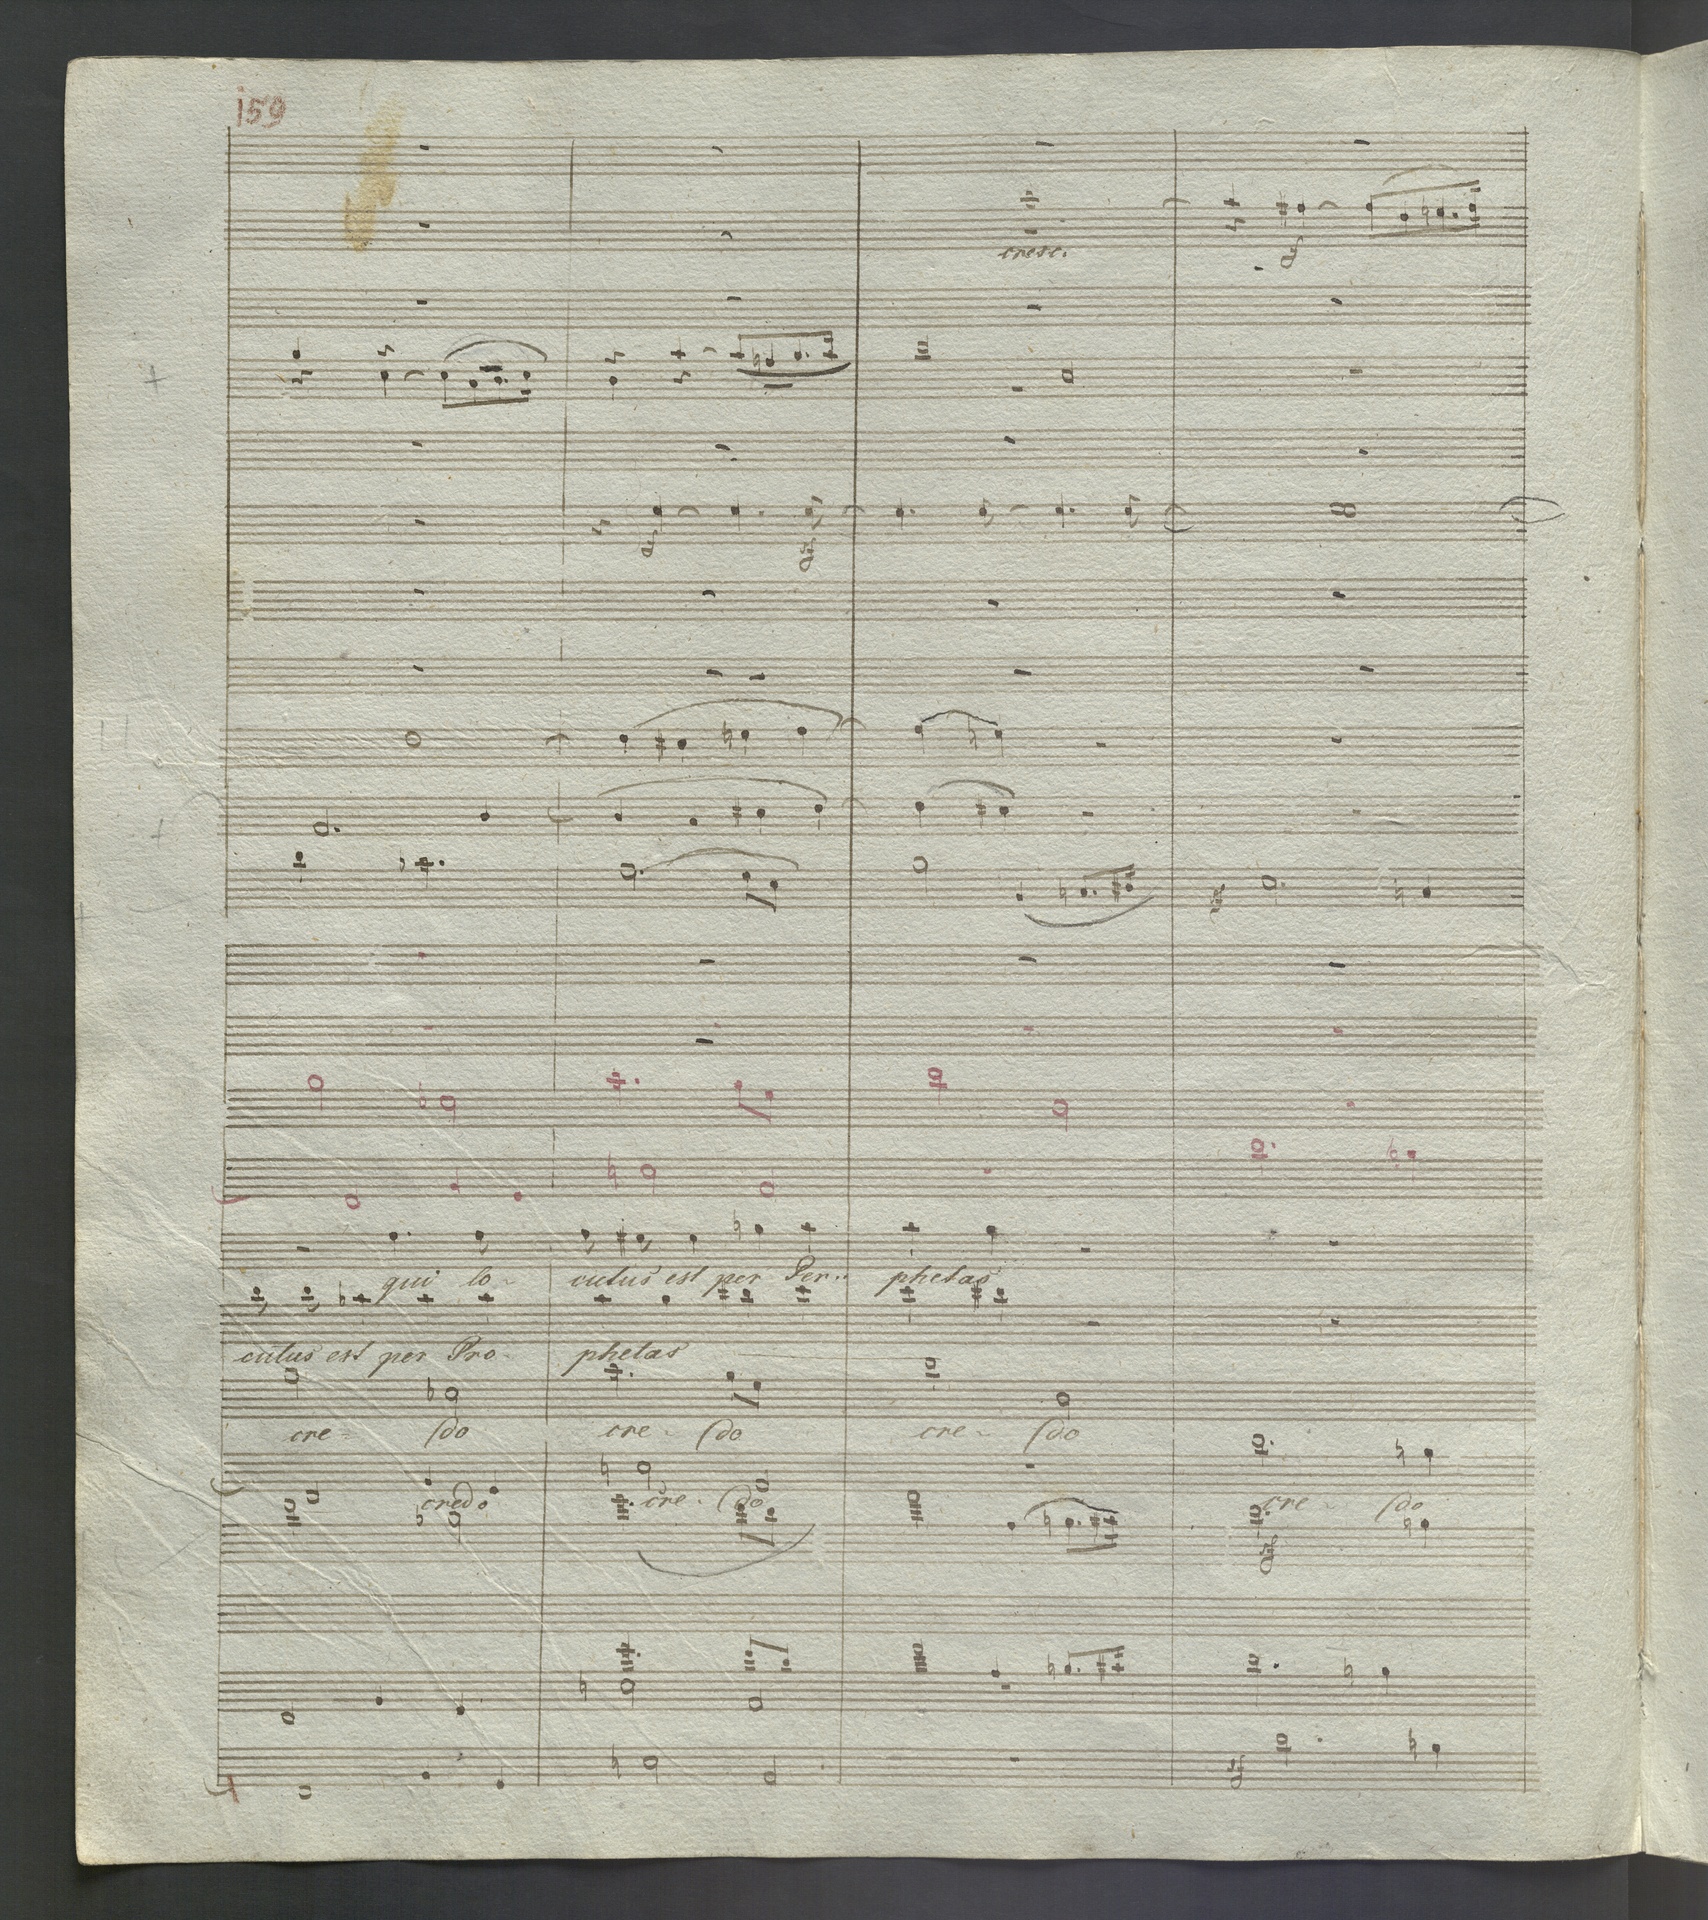 159
cresc.
sf
sf
sf
sf
qui lo- cutus est per Per- phetas
cutus est per Pro- phetas
cre- do cre- do cre- do
credo cre- do cre- do
sf
sf